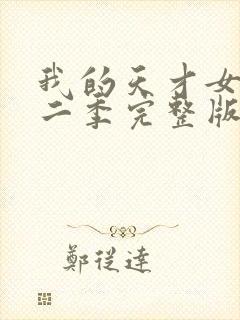 我的天才女
二季完整版
鄭従達